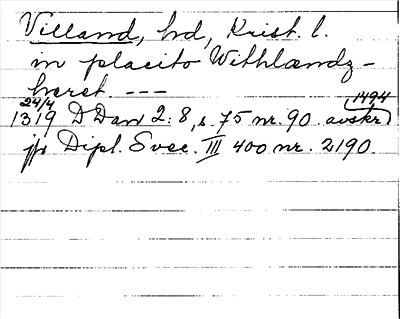 Villand, hd, Krist. l.
in placito Withlændz-
heret. ---
24/4 1494
1319 D Dan 2: 8, s. 75 nr. 90. avskr.
jfr Dipl. Svec. III 400 nr. 2190.